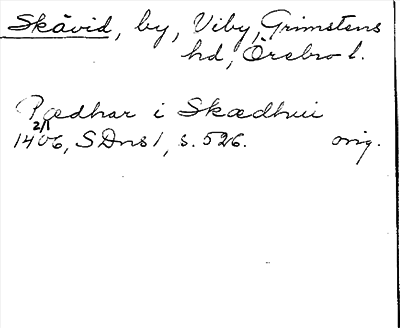 Skävid, by, Viby, Grimstens
hd, Örebro l.
Pædhar i Skædhvi
2/1
1406, SDns 1, s. 526. orig.